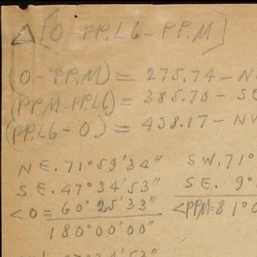 △[O-PP.L6-PP.M]
(O-PP.M) = 275.74-N
(PP.M-PP.L6) = 385.70-S
(PP.L6-O) = 438.17-N
NE. 71°59'34" SW. 71°
SE. 47°34'53" SE. 9°
<O= 60°25'33" <PPM=81°0
180°00'00"